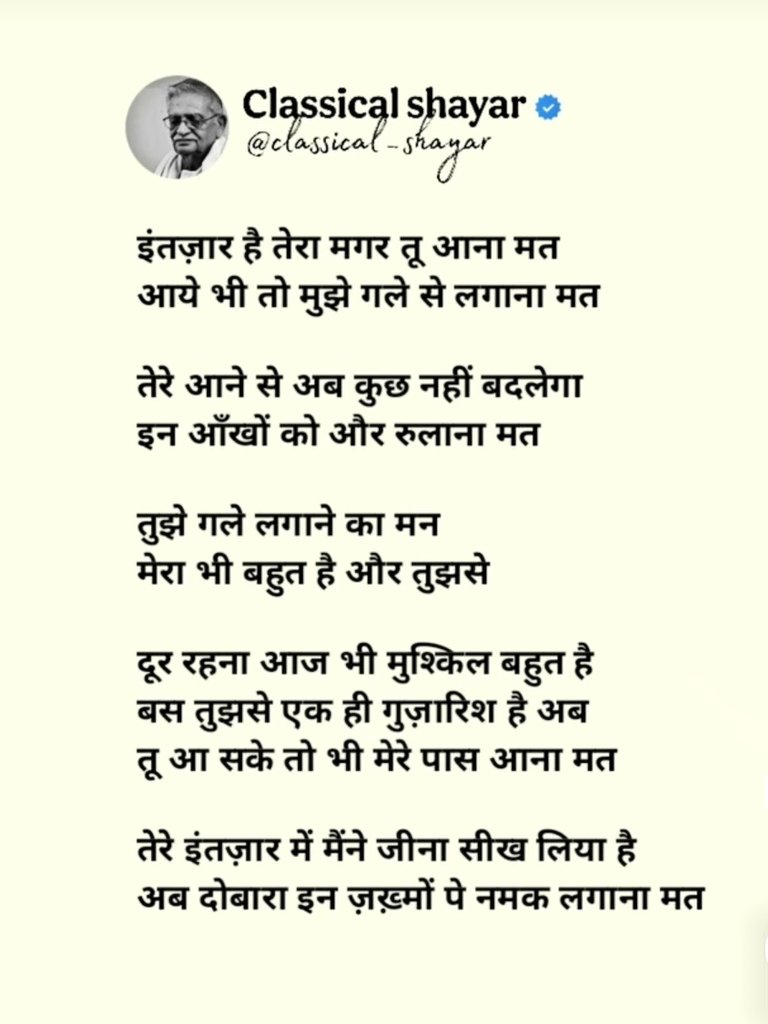 Classical shayar
@classical_shayar
इंतज़ार है तेरा मगर तू आना मत
आये भी तो मुझे गले से लगाना मत
तेरे आने से अब कुछ नहीं बदलेगा
इन आँखों को और रुलाना मत
तुझे गले लगाने का मन
मेरा भी बहुत है और तुझसे
दूर रहना आज भी मुश्किल बहुत है
बस तुझसे एक ही गुज़ारिश है अब
तू आ सके तो भी मेरे पास आना मत
तेरे इंतज़ार में मैंने जीना सीख लिया है
अब दोबारा इन ज़ख़्मों पे नमक लगाना मत